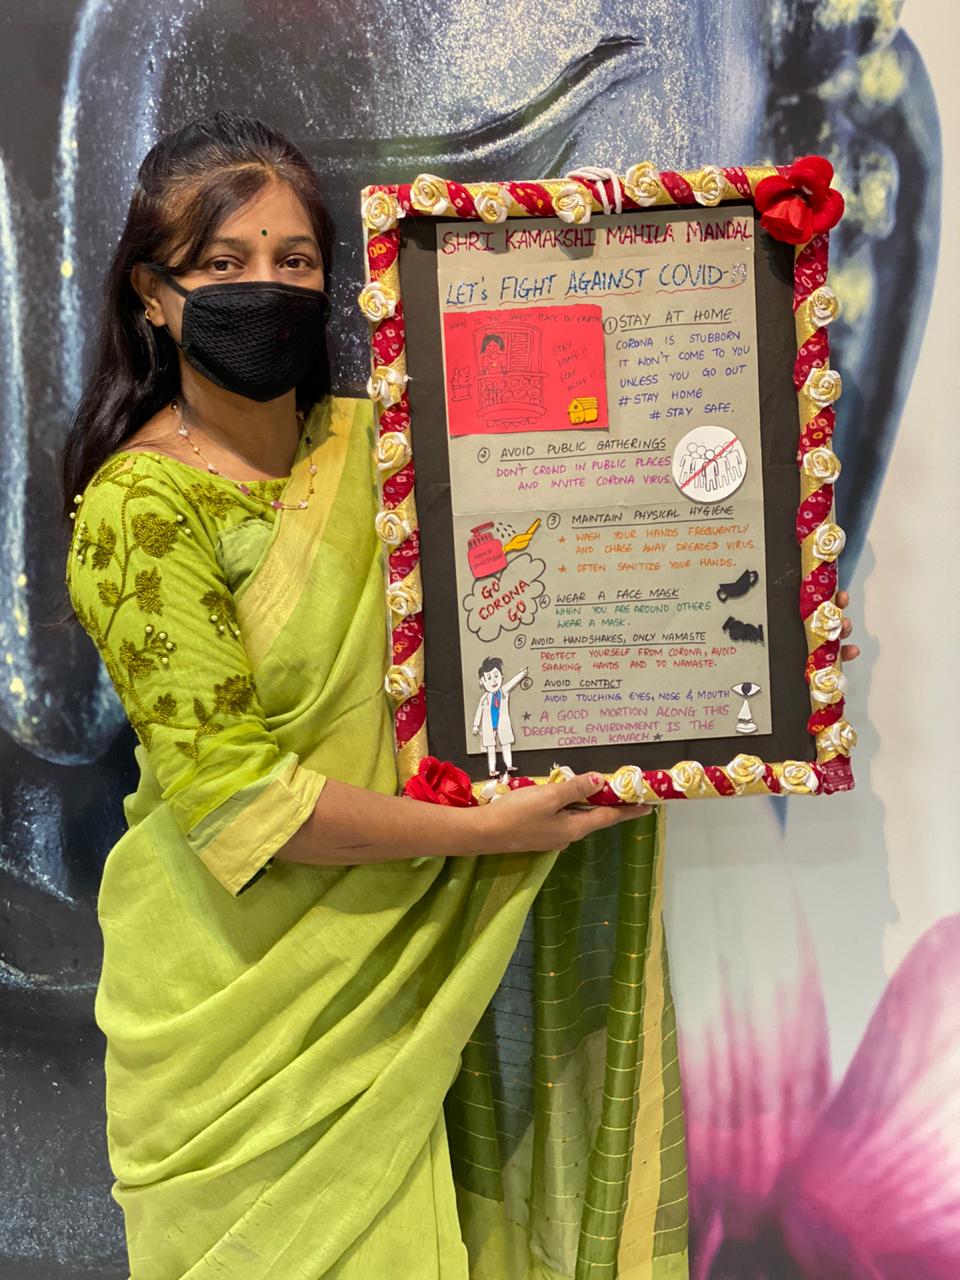 SHRI KAMAKSHI MAHILA MANDAL
LET's FIGHT AGAINST COVID-19
HOME IS THE SAFEST PLACE ON EARTH
STAY
HOME!!
STAY
ALIVE!!
① STAY AT HOME
CORONA IS STUBBORN
IT WON'T COME TO YOU
UNLESS YOU GO OUT
# STAY HOME
# STAY SAFE.
② AVOID PUBLIC GATHERINGS
DON'T CROWD IN PUBLIC PLACES
AND INVITE CORONA VIRUS.
③ MAINTAIN PHYSICAL HYGIENE
★ WASH YOUR HANDS FREQUENTLY
AND CHASE AWAY DREADED VIRUS.
★ OFTEN SANITIZE YOUR HANDS.
HAND
SANITIZER
GO
CORONA
GO
④ WEAR A FACE MASK
WHEN YOU ARE AROUND OTHERS
WEAR A MASK.
⑤ AVOID HANDSHAKES, ONLY NAMASTE
PROTECT YOURSELF FROM CORONA, AVOID
SHAKING HANDS AND DO NAMASTE.
⑥ AVOID CONTACT
AVOID TOUCHING EYES, NOSE & MOUTH
★ A GOOD MORTION ALONG THIS
DREADFUL ENVIRONMENT IS THE
CORONA KAVACH ★